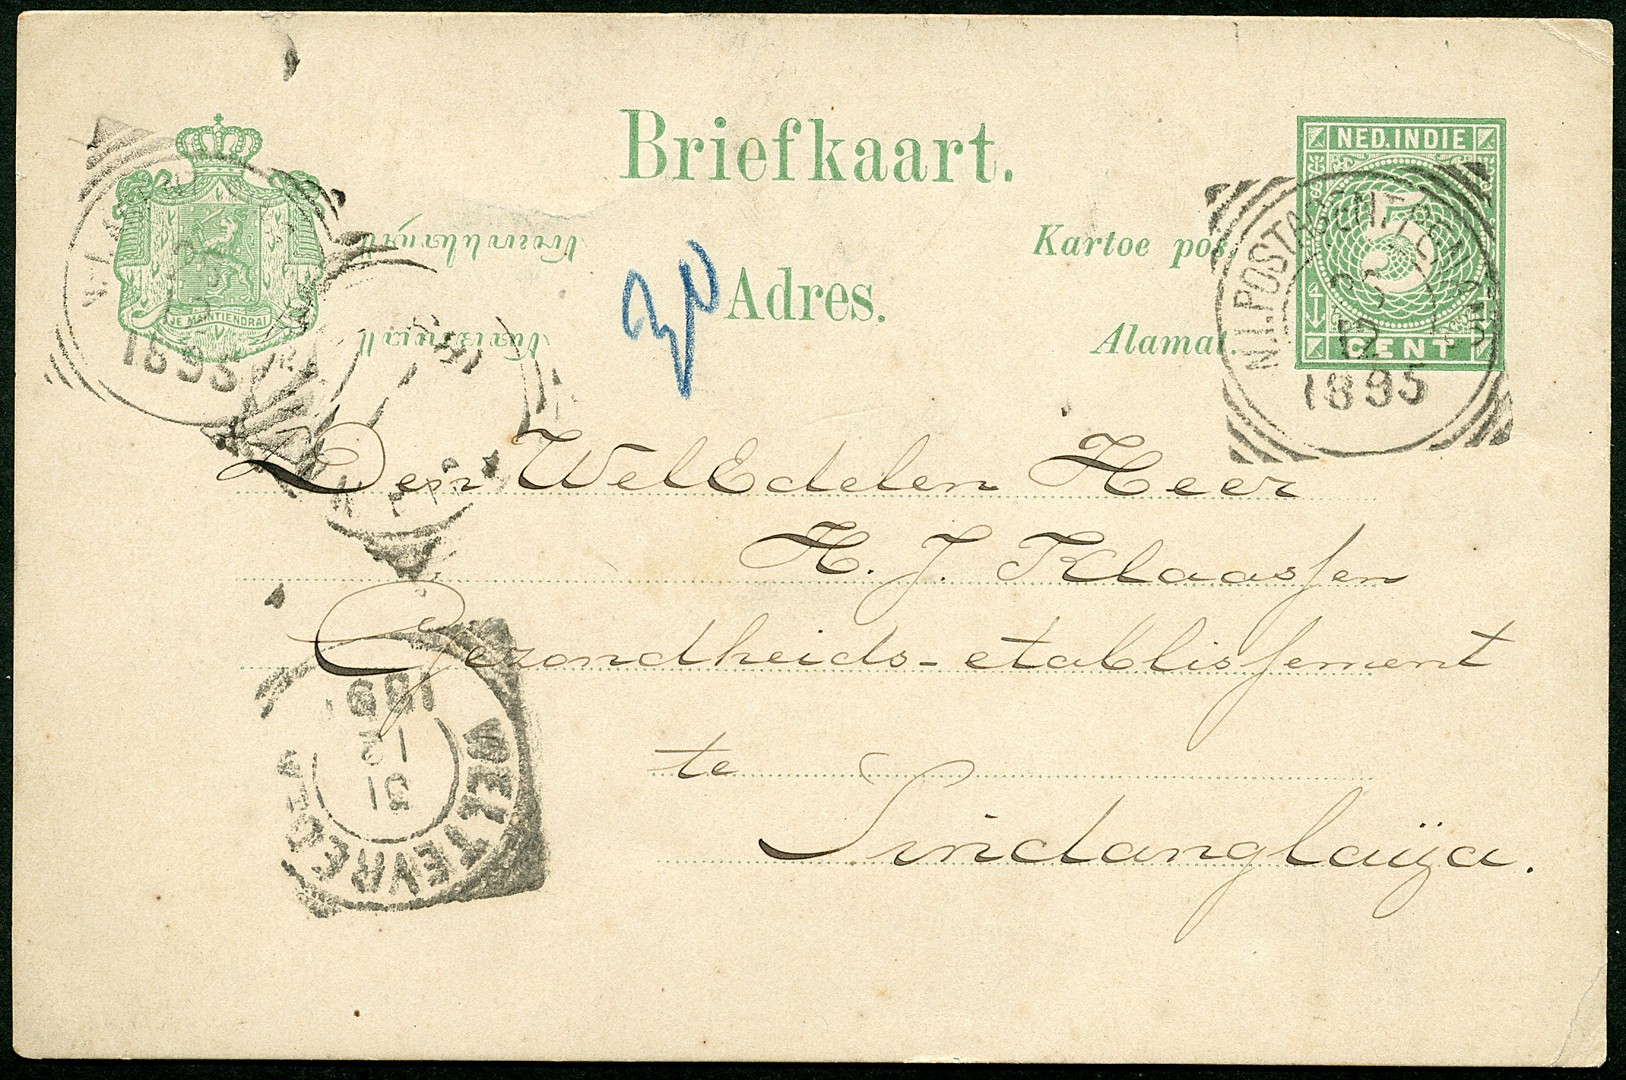 Briefkaart.
NED. INDIE
5
CENT
Kartoe pos
Adres.
Alamat
JE MAINTIENDRAI
1895
N.I. POSTAGENT
12
1895
Den WelEdelen Heer
H. J. Klaassen
Gezondheids-etablissement
te
Sindanglaija.
WELTEVREDEN
31
12
189